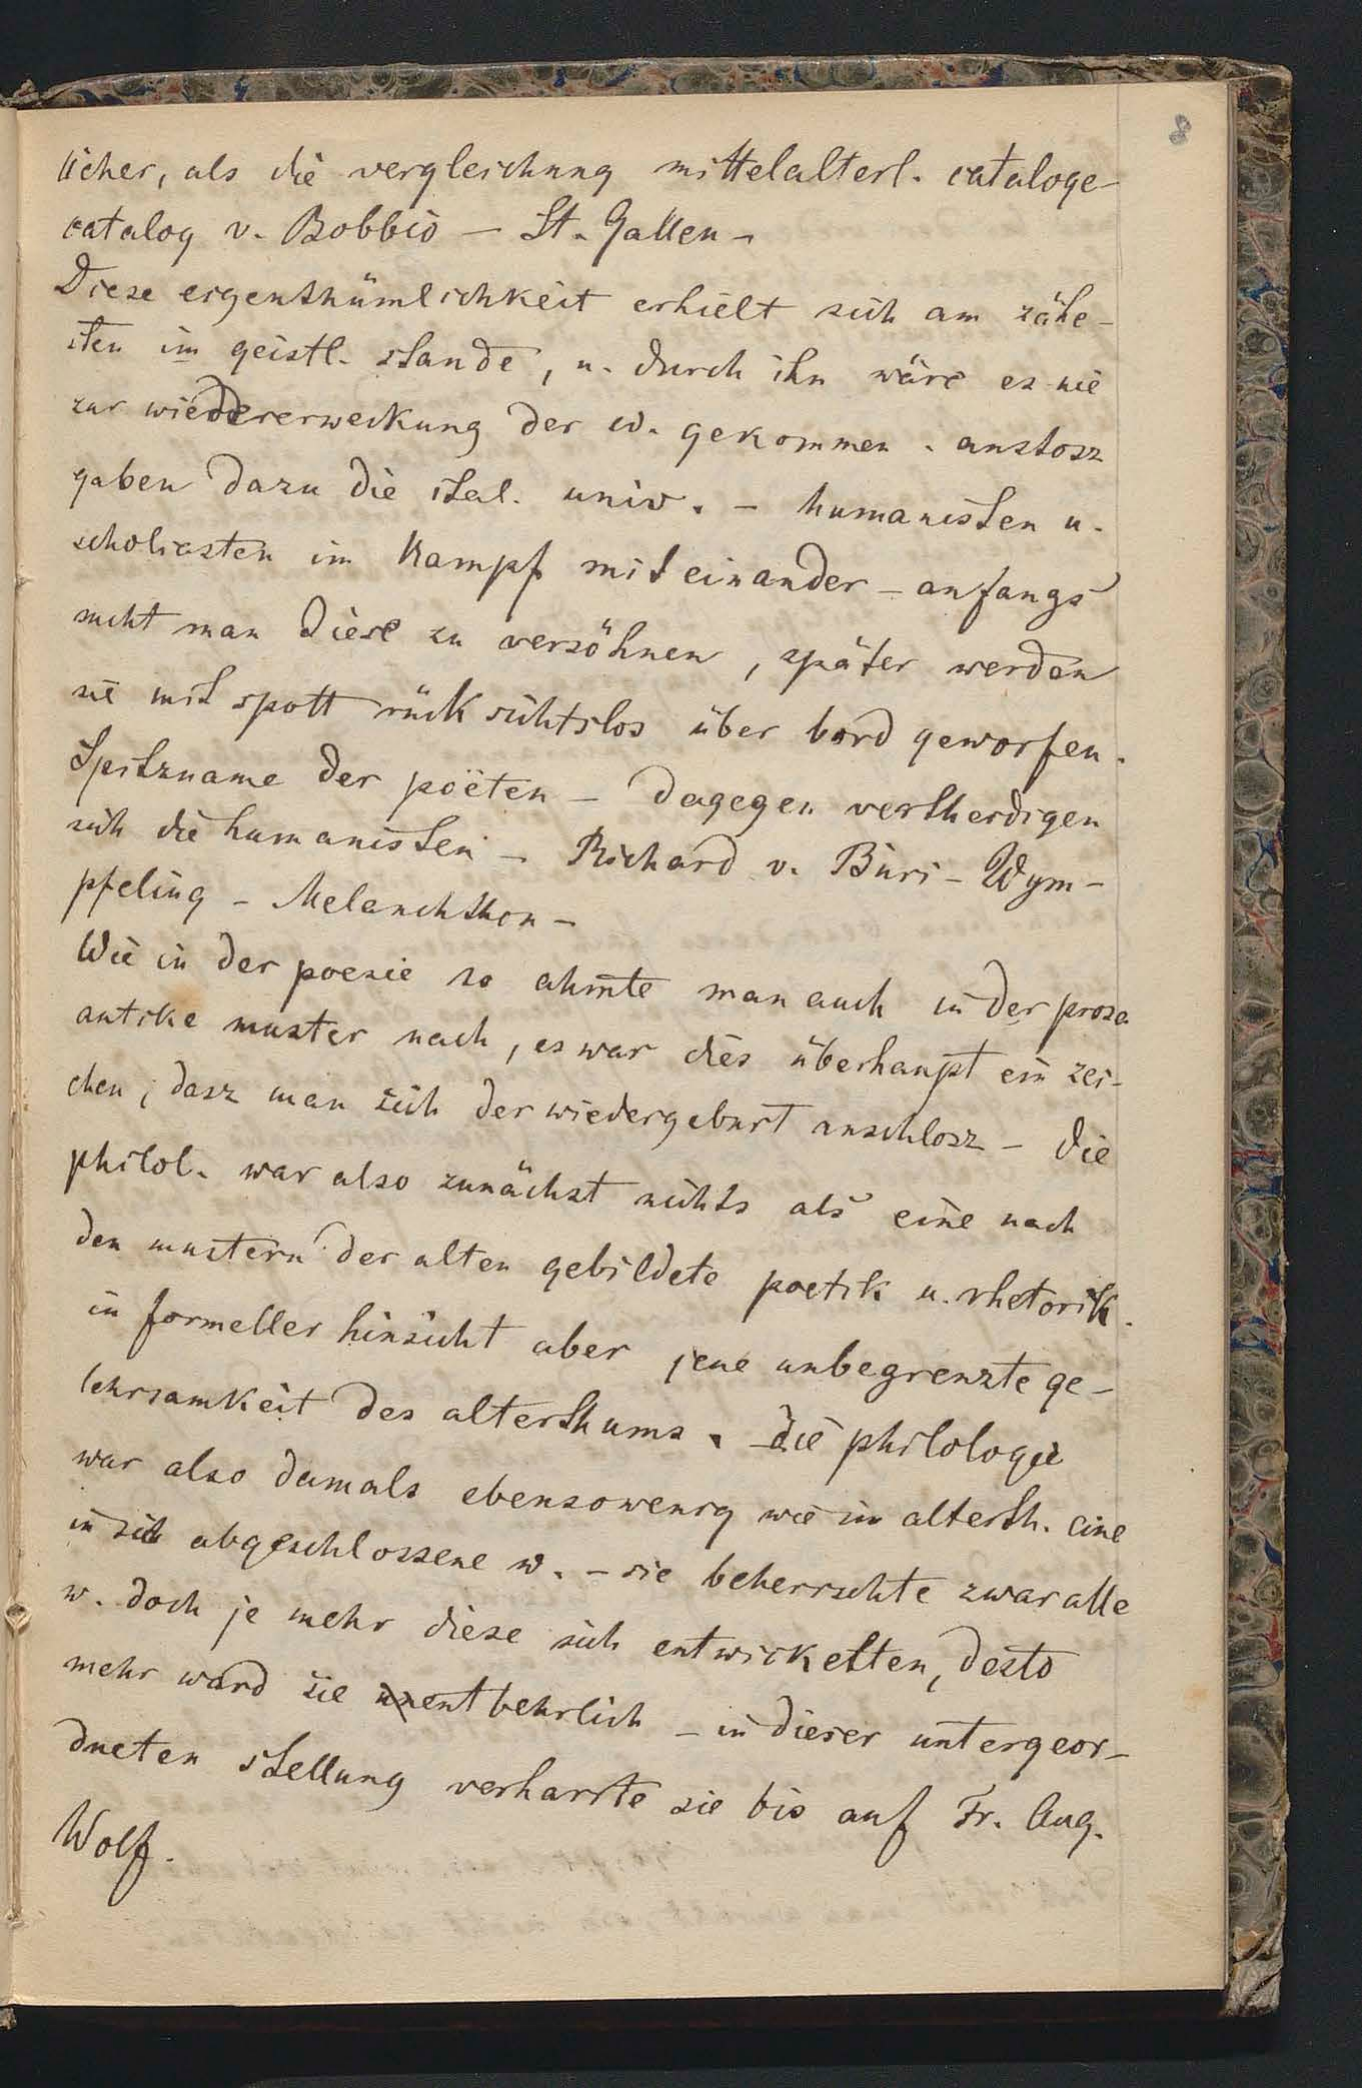 8
licher, als die vergleichung mittelalterl. cataloge
catalog v. Bobbio – St. Gallen –
Diese eigenthümlichkeit erhielt sich am zähe-
sten im geistl. stande, u. durch ihn wäre es nie
zur wiedererweckung der w. gekommen. anstosz
gaben dazu die ital. univ. – humanisten u.
scholiasten im Kampf mit einander – anfangs
sucht man diese zu versöhnen, später werden
sie mit spott rücksichtslos über bord geworfen.
Spitzname der poëten – dagegen vertheidigen
sich die humanisten – Richard v. Büri – Wym-
pfeling – Melanchthon –
Wie in der poesie so ahm̄te man auch in der prosa
antike muster nach, es war dies überhaupt ein zei-
chen, dasz man sich der wiedergeburt anschlosz – die
philol. war also zunächst nichts als eine nach
den mustern der alten gebildete poetik u. rhetorik.
in formeller hinsicht aber jene unbegrenzte ge-
lehrsamkeit des alterthums. die philologie
war also damals ebensowenig wie im alterth. eine
in sich abgeschlossene w. – sie beherrschte zwar alle
w. doch je mehr diese sich entwickelten, desto
mehr ward sie unentbehrlich – in dieser untergeor-
dneten stellung verharrte sie bis auf Fr. Aug.
Wolf.